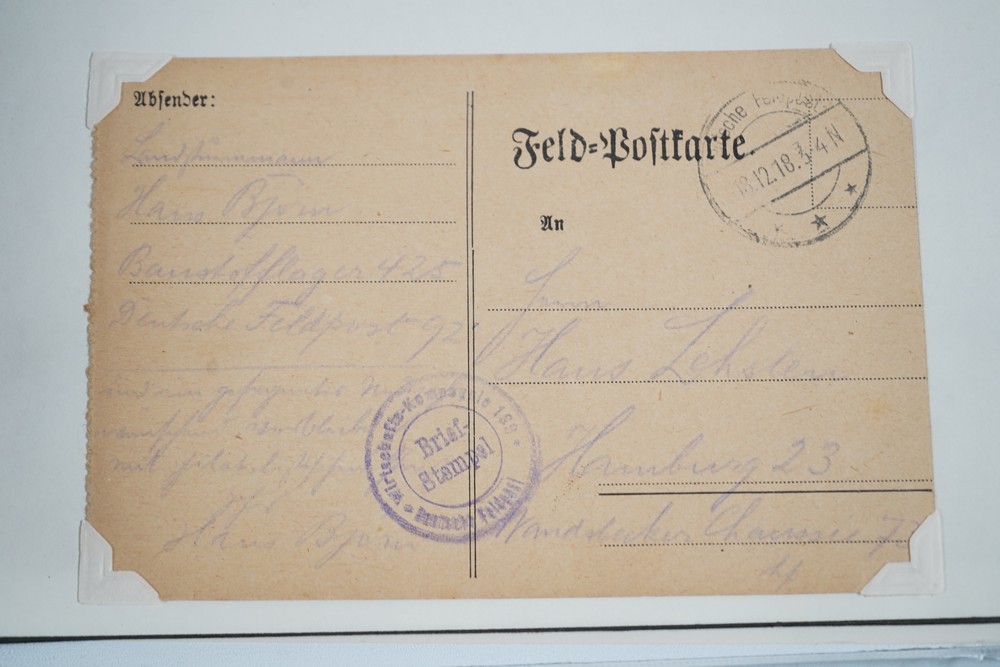 Absender:
Landsturmmann
Hans Björn
Baustofflager 425
Deutsche Feldpost 97
und ein gesegnetes
wünschen
mit
Hans Björn
Feld-Postkarte.
sche Feldpost
18.12.18. 3-4 N
An
Herrn
Hans
Hamburg 23
Wandsbecker Chaussee
Wirtschafts-Kompagnie 169 *
Brief-
Stempel
* Deutsche Feldpost